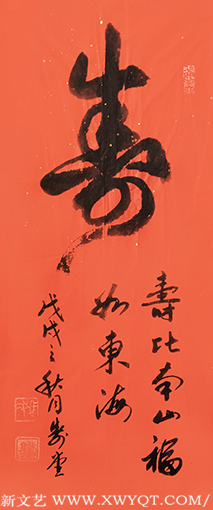 壽
壽比南山福
如東海
戊戌之秋月
新文艺 WWW.XWYQT.COM/